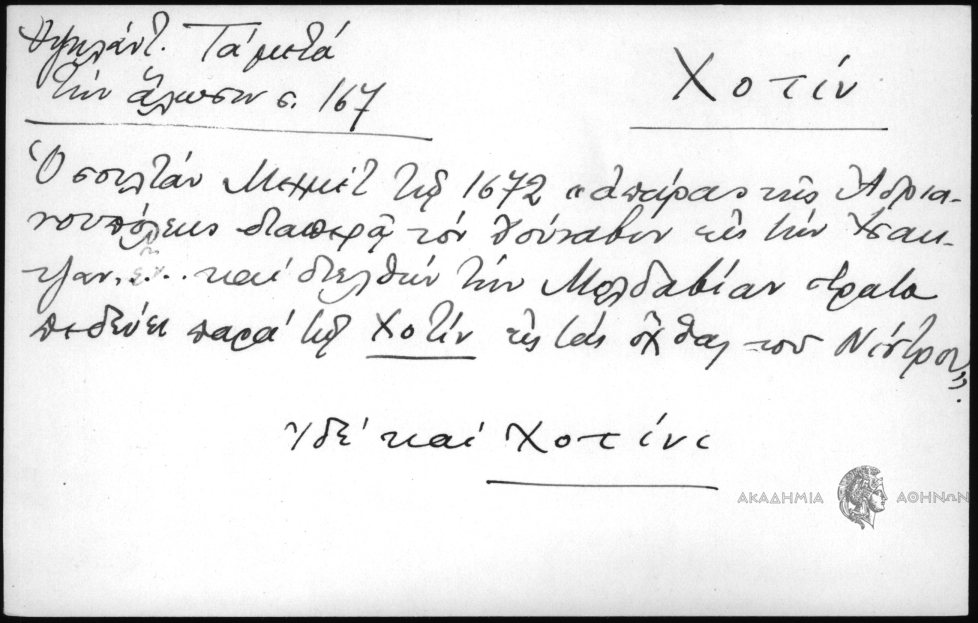 Ὑψηλάντ. Τὰ μετὰ
τὴν ἅλωσιν σ. 167
Χοτίν
Ὁ σουλτὰν Μεχμὲτ τῷ 1672 «ἀπάρας τῆς Ἀδρια-
νουπόλεως διαπερᾷ τὸν Δούναβιν εἰς τὴν Ἰσακ-
τζαν..... καὶ διελθὼν τὴν Μολδαβίαν στρατο
πεδεύει παρὰ τῷ Χοτὶν εἰς τὰς ὄχθας τοῦ Νίστρου».
Ἰδὲ καὶ Χοτίνι
ΑΚΑΔΗΜΙΑ ΑΘΗΝΩΝ